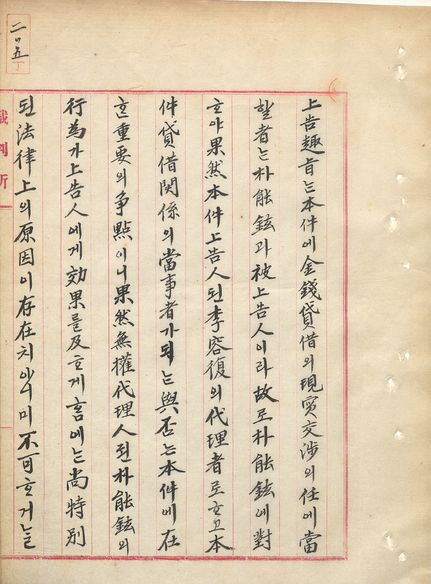 二〇五丁
上告趣旨는本件에金錢貸借의現實交渉의任에當
ᄒᆞᆫ者는朴能鉉과被上告人이라故로朴能鉉에對
ᄒᆞ야果然本件上告人된李容復의代理者로ᄒᆞ고本
件貸借関係의當事者가되는與否는本件에在
ᄒᆞᆫ重要의争點이니果然無權代理人된朴能鉉의
行為가上告人에게効果를及ᄒᆞ게言에는尚特別
된法律上의原因이存在치아니미不可ᄒᆞ거늘
裁判所